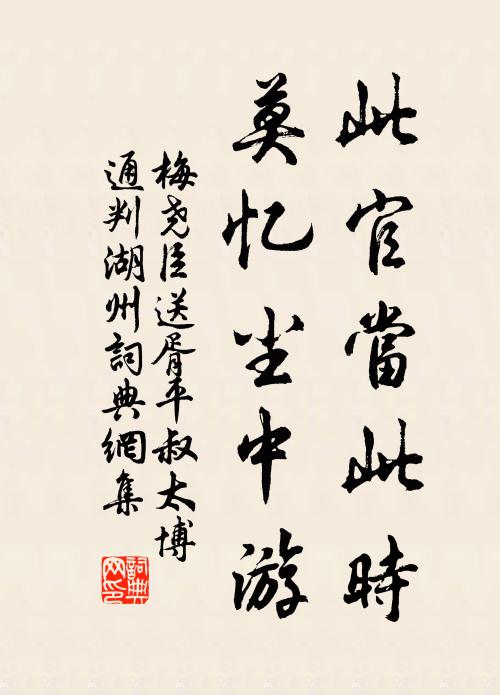 此官當此時
莫忆尘中游
梅尧臣送胥平叔太博
通判湖州詞典網集
詞典网印